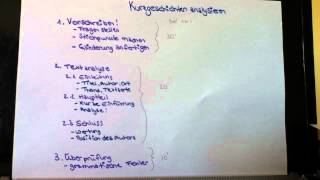 Kurzgeschichten analysieren
1. Vorschreiben!
- Fragen stellen
- Stichpunkte machen
- Gliederung anfertigen
30'
2. Textanalyse
2.1 Einleitung
- Titel, Autor, Ort
- Thema, Textsorte
2.2 Hauptteil
- kurze Einführung
- Analyse!
2.3 Schluss
- Wertung
- Position des Autors
3. Überprüfung
- grammatische Fehler
10'